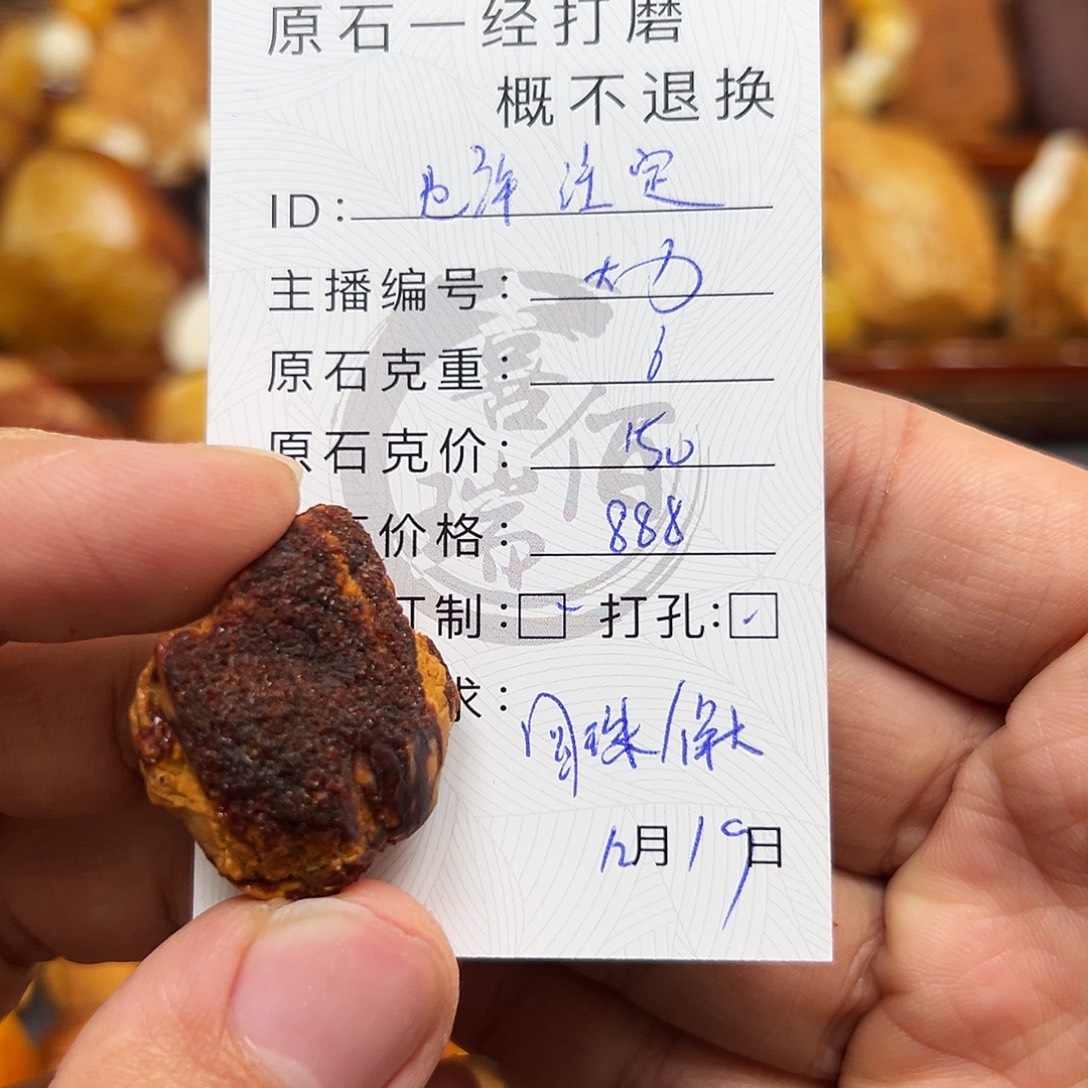 原石一经打磨
概不退换
ID: 注定
主播编号: 大力
原石克重: 6
原石克价: 150
价格: 888
订制: 打孔:
求: 圆珠/保大
12月19日
喜佰瑞